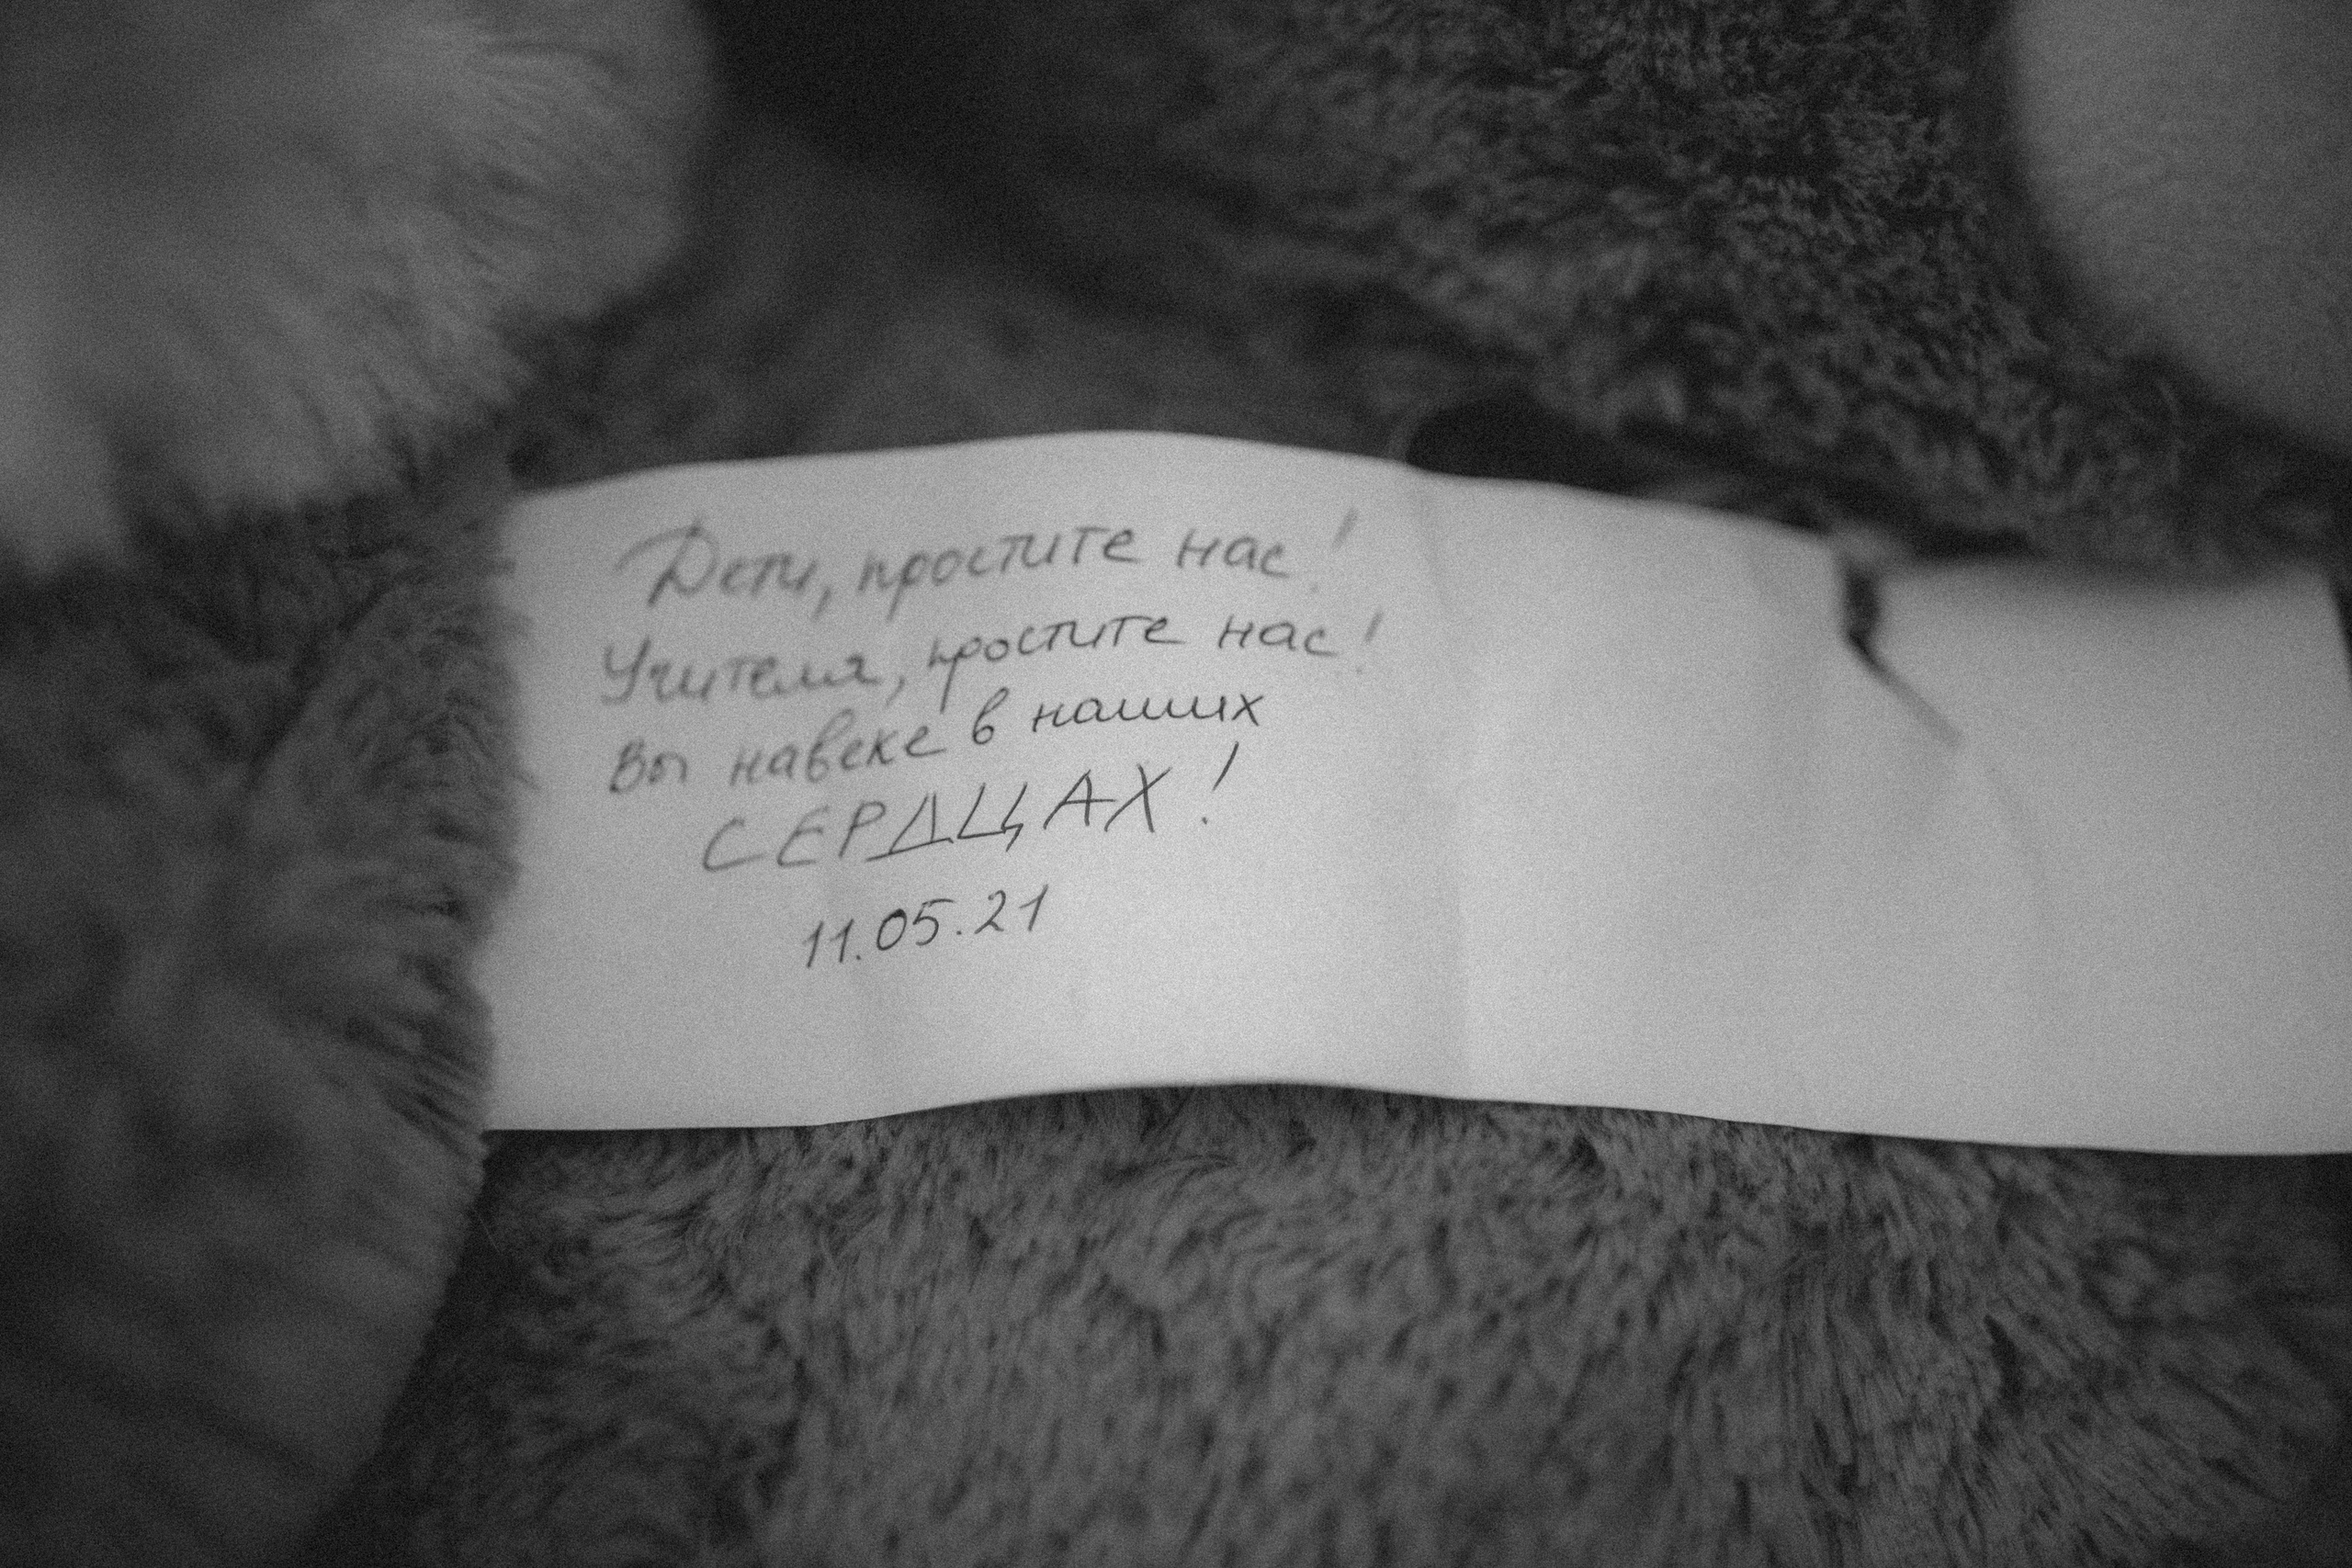 Дети, простите нас!
Учителя, простите нас!
Вы навеке в наших
СЕРДЦАХ!
11.05.21